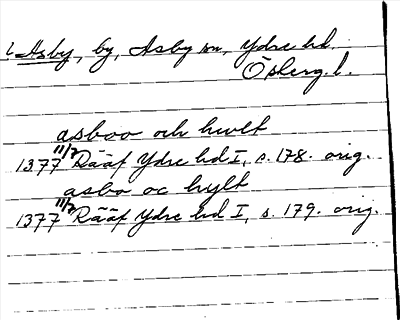 1. Asby, by, Asby sn, Ydre hd.
Östergl.
asboo och hwlt
1377 11/7 Rääf Ydre hd I, s. 178. orig.
asbo oc hylt
1377 11/7 Rääf Ydre hd I, s. 179. orig.